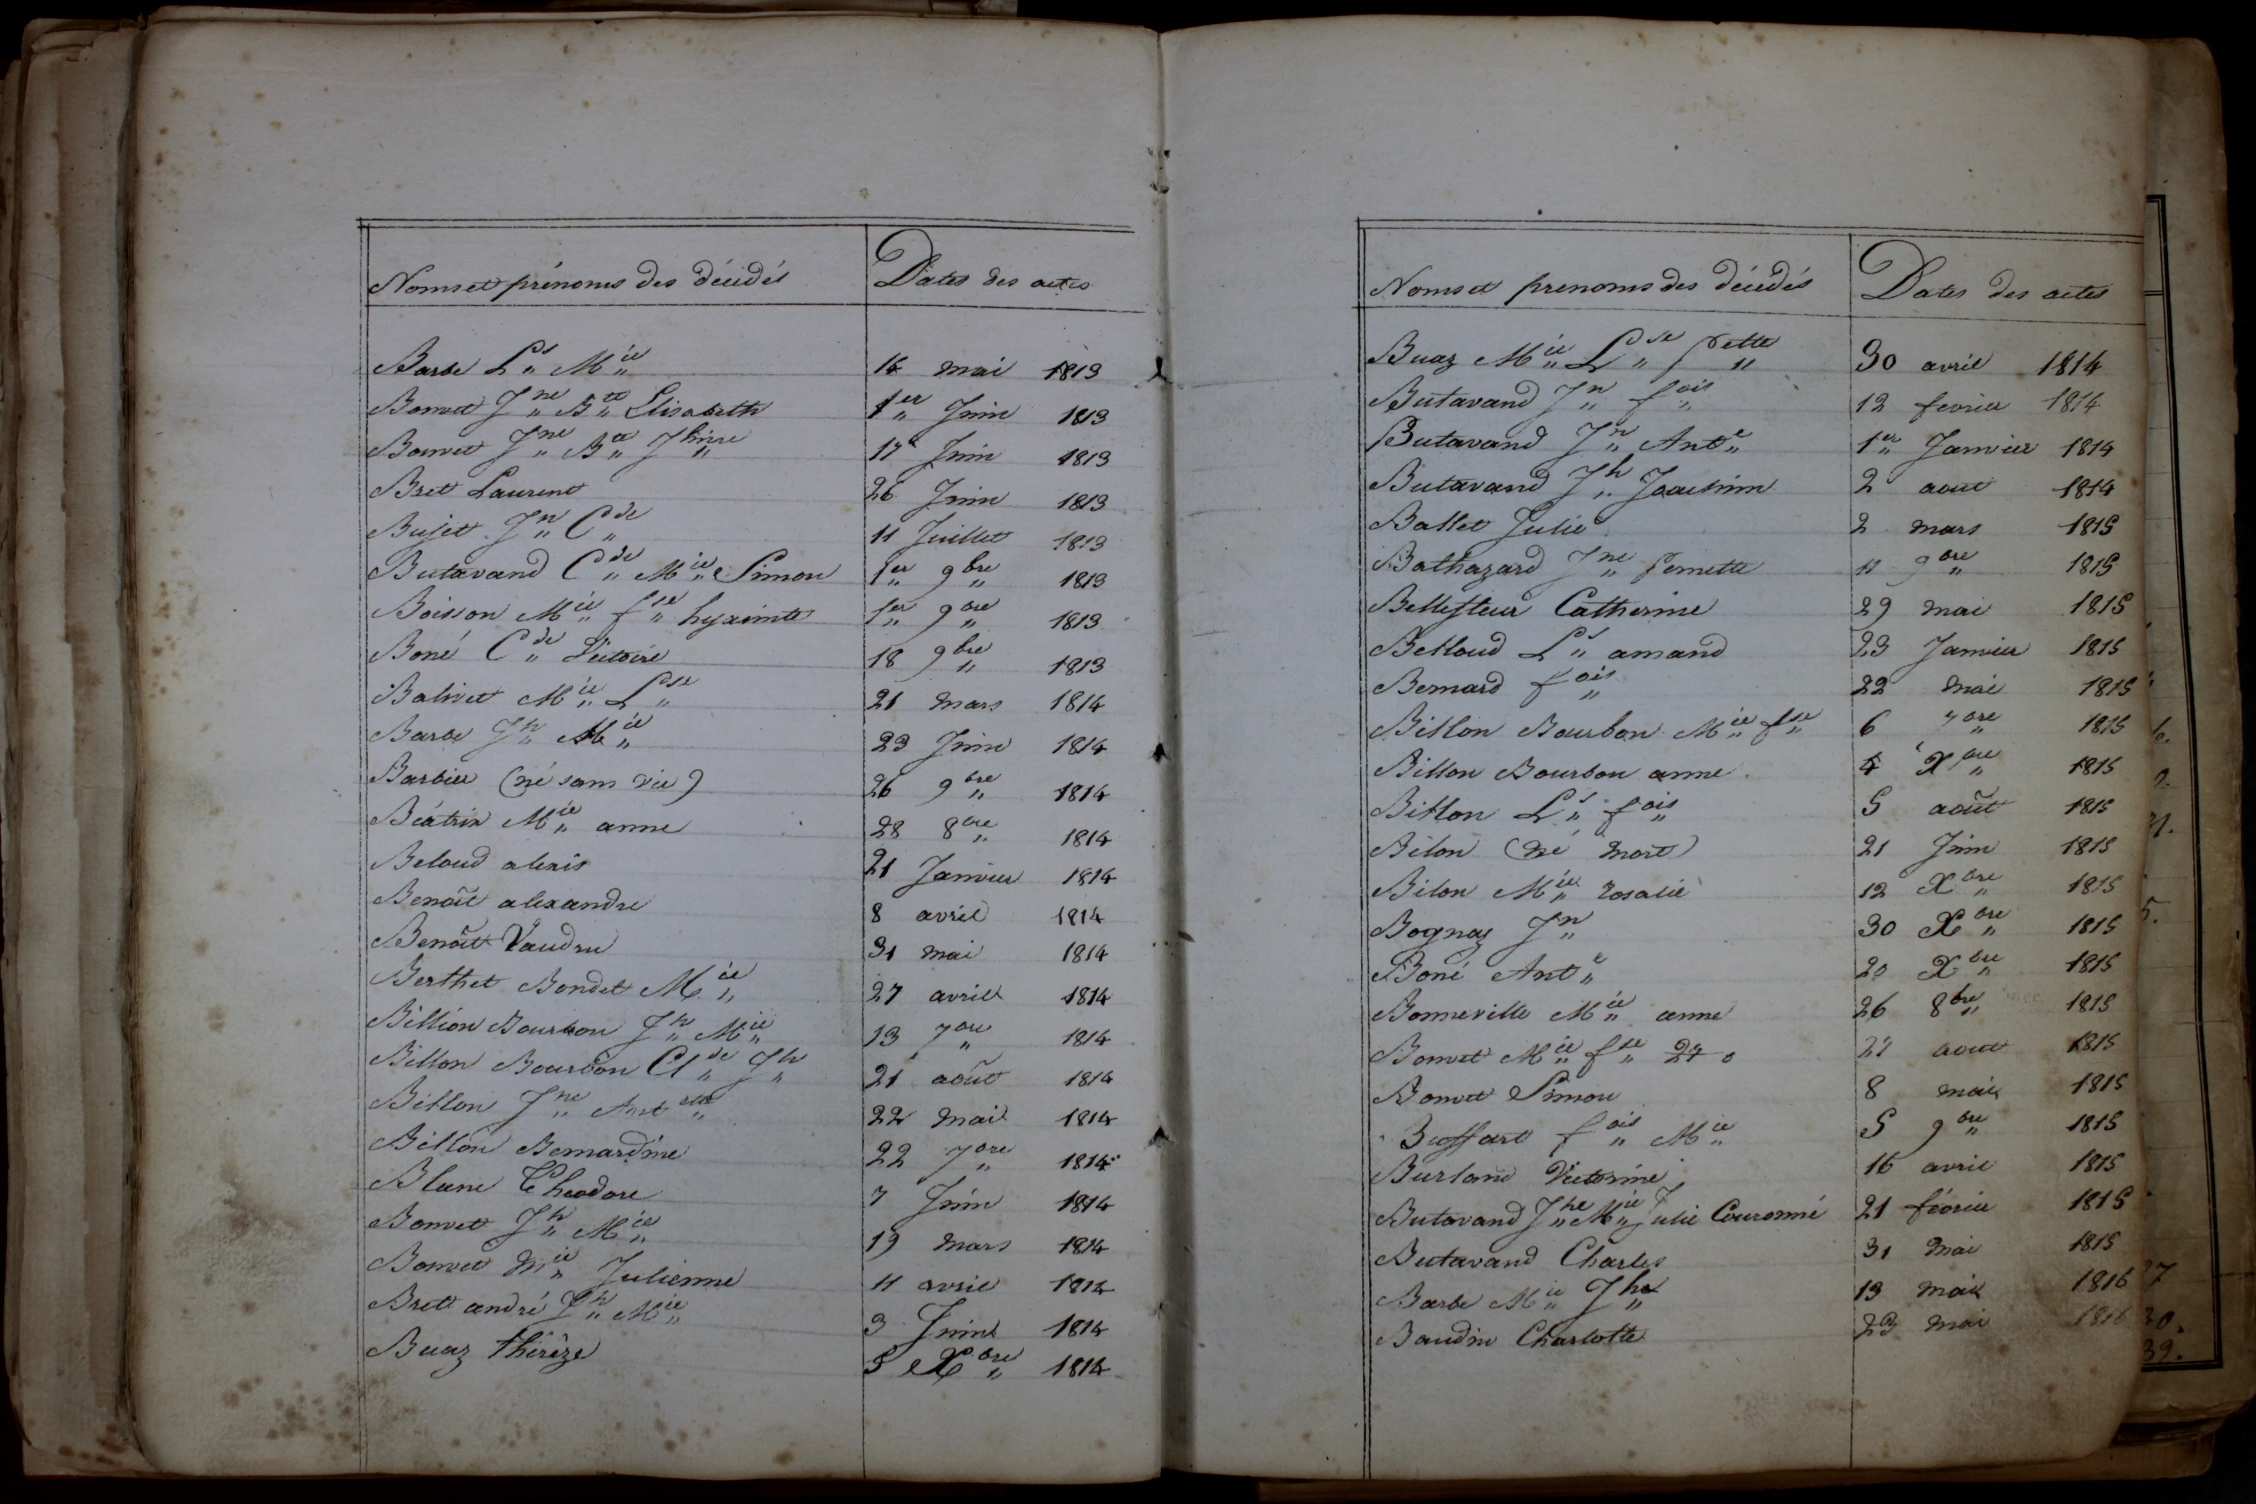 Noms et prénoms des décédés Dates des actes
Barbe Ls Mie 14 mai 1813
Bonvet Jne Bte Elisabeth 1er Juin 1813
Bonvet Jne Bte Jhine 17 Juin 1813
Bret Laurent 26 Juin 1813
Bujet Jn Cde 11 Juillet 1813
Butavand Cde Mie Simon 1er 9bre 1813
Boisson Mie fse hyacinte 1er 9bre 1813
Boné Cde Victoire 18 9bre 1813
Balivet Mie Lse 21 mars 1814
Barbe Jh Mie 23 Juin 1814
Barbier (né sans vie) 26 9bre 1814
Béatrix Mie anne 28 8bre 1814
Beloud alexis 21 Janvier 1814
Benoît alexandre 8 avril 1814
Benoît Vaudru 31 mai 1814
Berthet Bondet Mie 27 avril 1814
Billion Bourbon Jh Mie 13 7bre 1814
Billon Bourbon Clde Jh 21 août 1814
Billon Jne Antte 22 mai 1814
Billon Bernardine 22 7bre 1814
Blanc Théodore 7 Juin 1814
Bonvet Jh Mie 19 mars 1814
Bonvet Mie Julienne 11 avril 1814
Brett andré Jh Mie 3 Juin 1814
Buaz thérèze 5 Xbre 1814
Noms et prenoms des décédés Dates des actes
Buaz Mie Lse pette 30 avril 1814
Butavand Jn fois 12 fevrier 1814
Butavand Jn Ante 1er Janvier 1814
Butavand Jh Joachim 2 aout 1814
Ballet Julie 2 mars 1815
Bathazard Jne Pernette 11 9bre 1815
Bellefleur Catherine 29 mai 1815
Belloud Ls amand 23 Janvier 1815
Bernard fois 22 mai 1815
Billon Bourbon Mie fse 6 7bre 1815
Billon Bourbon anne 4 Xbre 1815
Billon Ls fois 5 août 1815
Bilon (né mort) 21 Juin 1815
Bilon Mie rosalie 12 Xbre 1815
Bognaz Jn 30 Xbre 1815
Boné Ante 20 Xbre 1815
Bonneville Mie anne 26 8bre 1815
Bonvet Mie fse 27 aout 1815
Bonvet Simon 8 mai 1815
Buffart fois Mie 5 9bre 1815
Burland Victorine 16 avril 1815
Butavand Jhe Mie Julie Couronné 21 février 1815
Butavand Charles 31 mai 1815
Barbe Mie Jhe 13 mai 1816
Baudin Charlotte 23 mai 1816